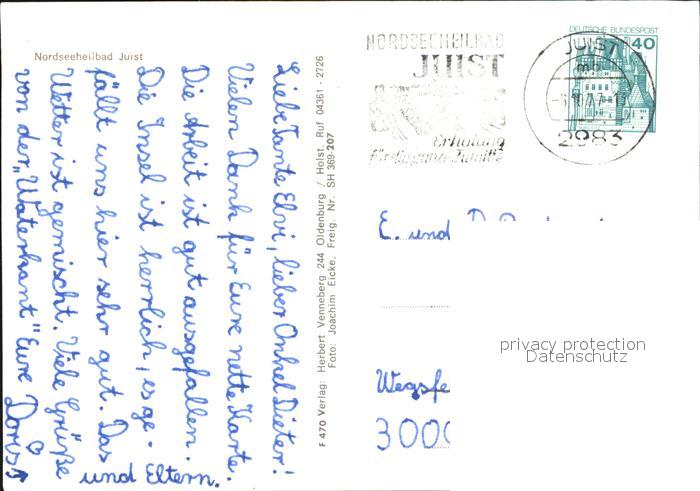 Nordseeheilbad Juist
Liebe Tante Elvi, lieber Onkel Dieter!
Vielen Dank für Eure nette Karte.
Die Arbeit ist gut ausgefallen.
Die Insel ist herrlich, es ge-
fällt uns hier sehr gut. Das
Wetter ist gemischt. Viele Grüße
von der „Waterkant" Eure Doris
und Eltern.
F 470 Verlag: Herbert Venneberg 244 Oldenburg / Holst. Ruf 04361 - 2726
Foto: Joachim Eicke, Freig. Nr. SH 369-207
NORDSEEHEILBAD
JUIST
Erholung
für die ganze Familie
DEUTSCHE BUNDESPOST
40
JUIST
mb
2983
E. und
Wegsfe
3000
privacy protection
Datenschutz